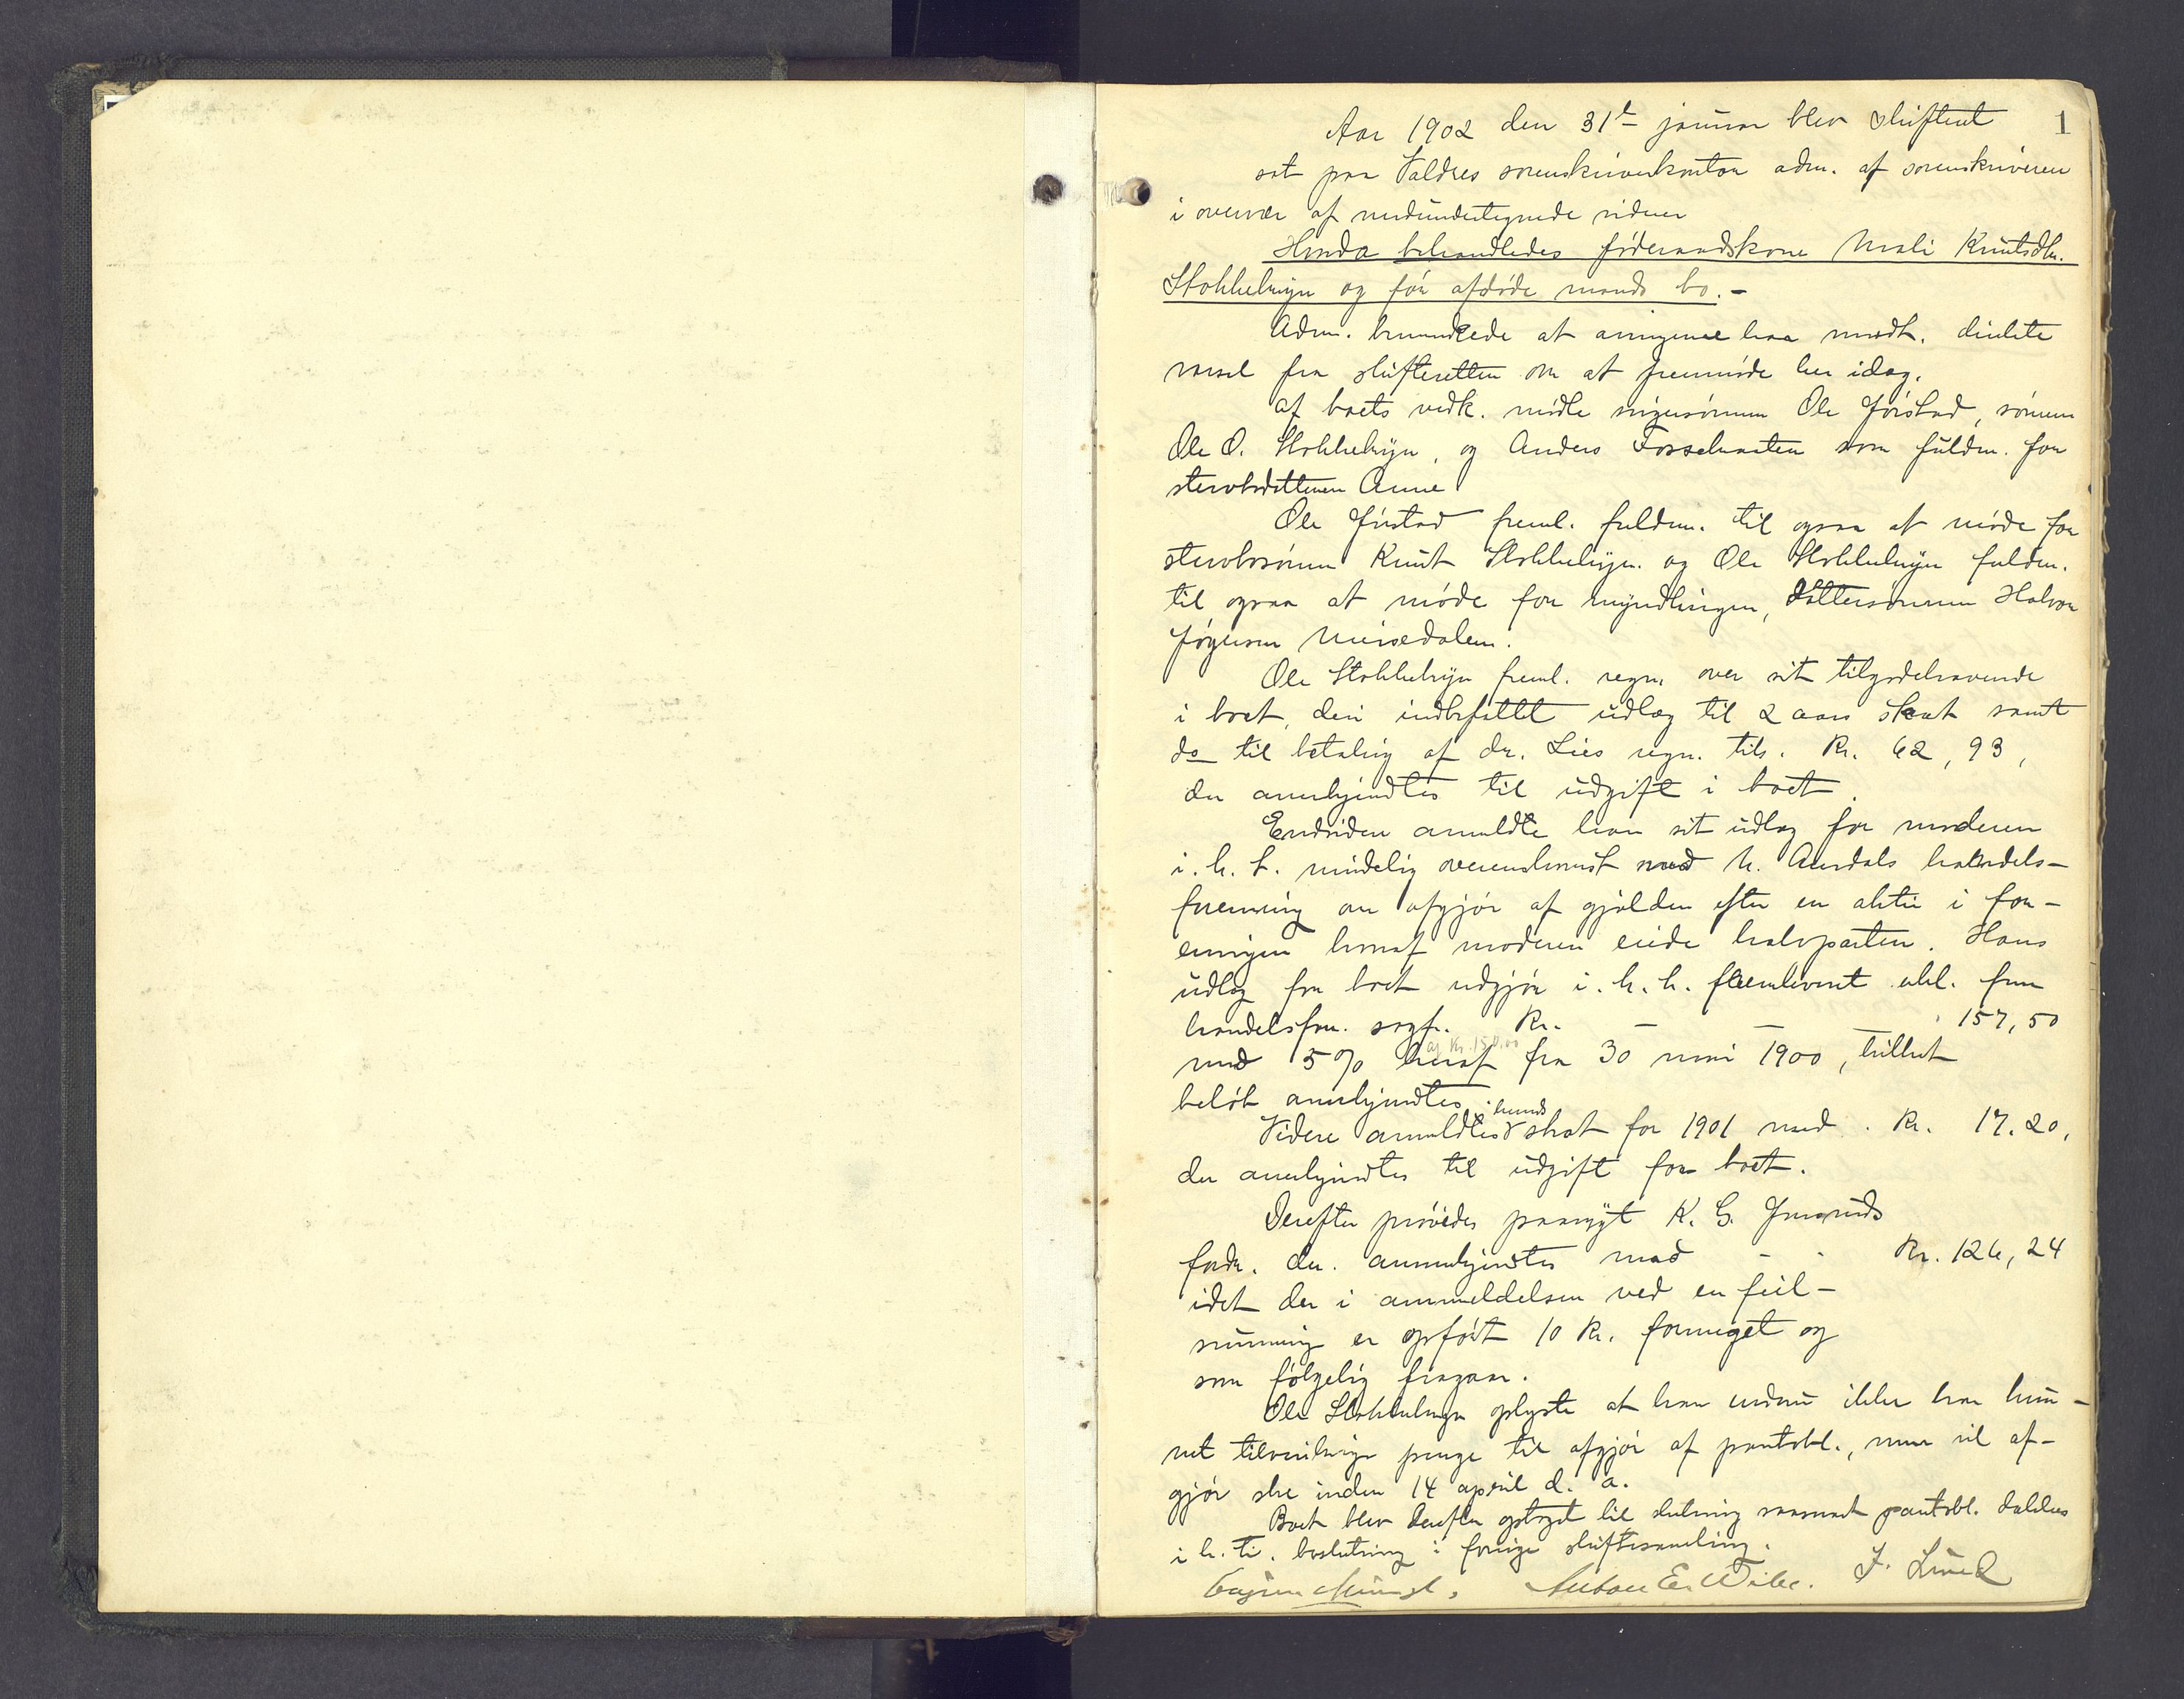 1
Aar 1902 den 31te januar blev skifteret
sat paa Valdres sorenskriverkontor adm. af sorenskriveren
i overvær af medundertegnede vidner
Hvorda behandledes føderaadskone Mali Knutsdtr.
Stokkebryn og før afdøde mands bo. -
Adm. bemærkede at arvingerne har modt. direkte
varsel fra skifteretten om at fremmøde her idag.
Af boets vedk. mødte svigersønnen Ole Jørstad, sønnen
Ole O. Stokkebryn, og Anders som fuldm. for
stervbodatteren Anne
Ole Jørstad freml. fuldm. til ogsaa at møde for
stervbosønnen Knut Stokkebryn og Ole Stokkebryn fuldm.
til ogsaa at møde for myndlingen, dattersønnen Halvor
Ole Stokkebryn freml. regn. over sit tilgodehavende
i boet, deri indbefattet udlæg til 2 aars skat samt
do til betaling af dr. Lies regn. tils. Kr. 62,93,
der anerkjendtes til udgift i boet.
Endvidere anmeldte han sit udlæg for moderen
i. h. t. mindelig overenskomst med N. Aurdals handels-
forening om afgjør af gjælden efter en aktie i for-
eningen hvoraf moderen eiede halvparten. Hans
udlæg for boet udgjør i. h. h. fremleveret erkl. fra
handelsfor. sagf. Kr. - - - 157,50
af Kr. 150,00
med 5 % heraf fra 30 mai 1900, hvilket
beløb anerkjendtes.
hendes
Videre anmeldtes skat for 1901 med . Kr. 17.20,
der anerkjendtes til udgift for boet.
Derefter prøvedes paanyt K. G.
fordr. der anerkjendtes med - - Kr. 126,24
idet der i anmeldelsen ved en feil-
summing er opført 10 Kr. formeget og
som følgelig fragaar.
Ole Stokkebryn oplyste at han endnu ikke har kun-
net tilveiebringe penge til afgjør af pantobl., men vil af-
gjør ske inden 14 april d. a.
Boet blev derefter optaget til slutning saasnart pantobl. dækkes
i h. t. beslutning i forrige skiftesamling.
Anton E. Wibe. J. Lund